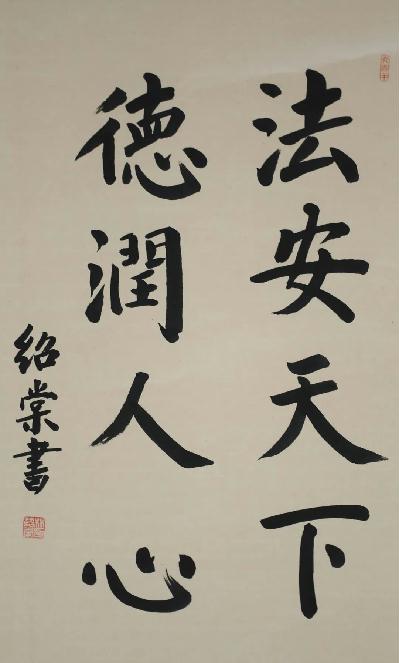 法安天下
德潤人心
紹棠書